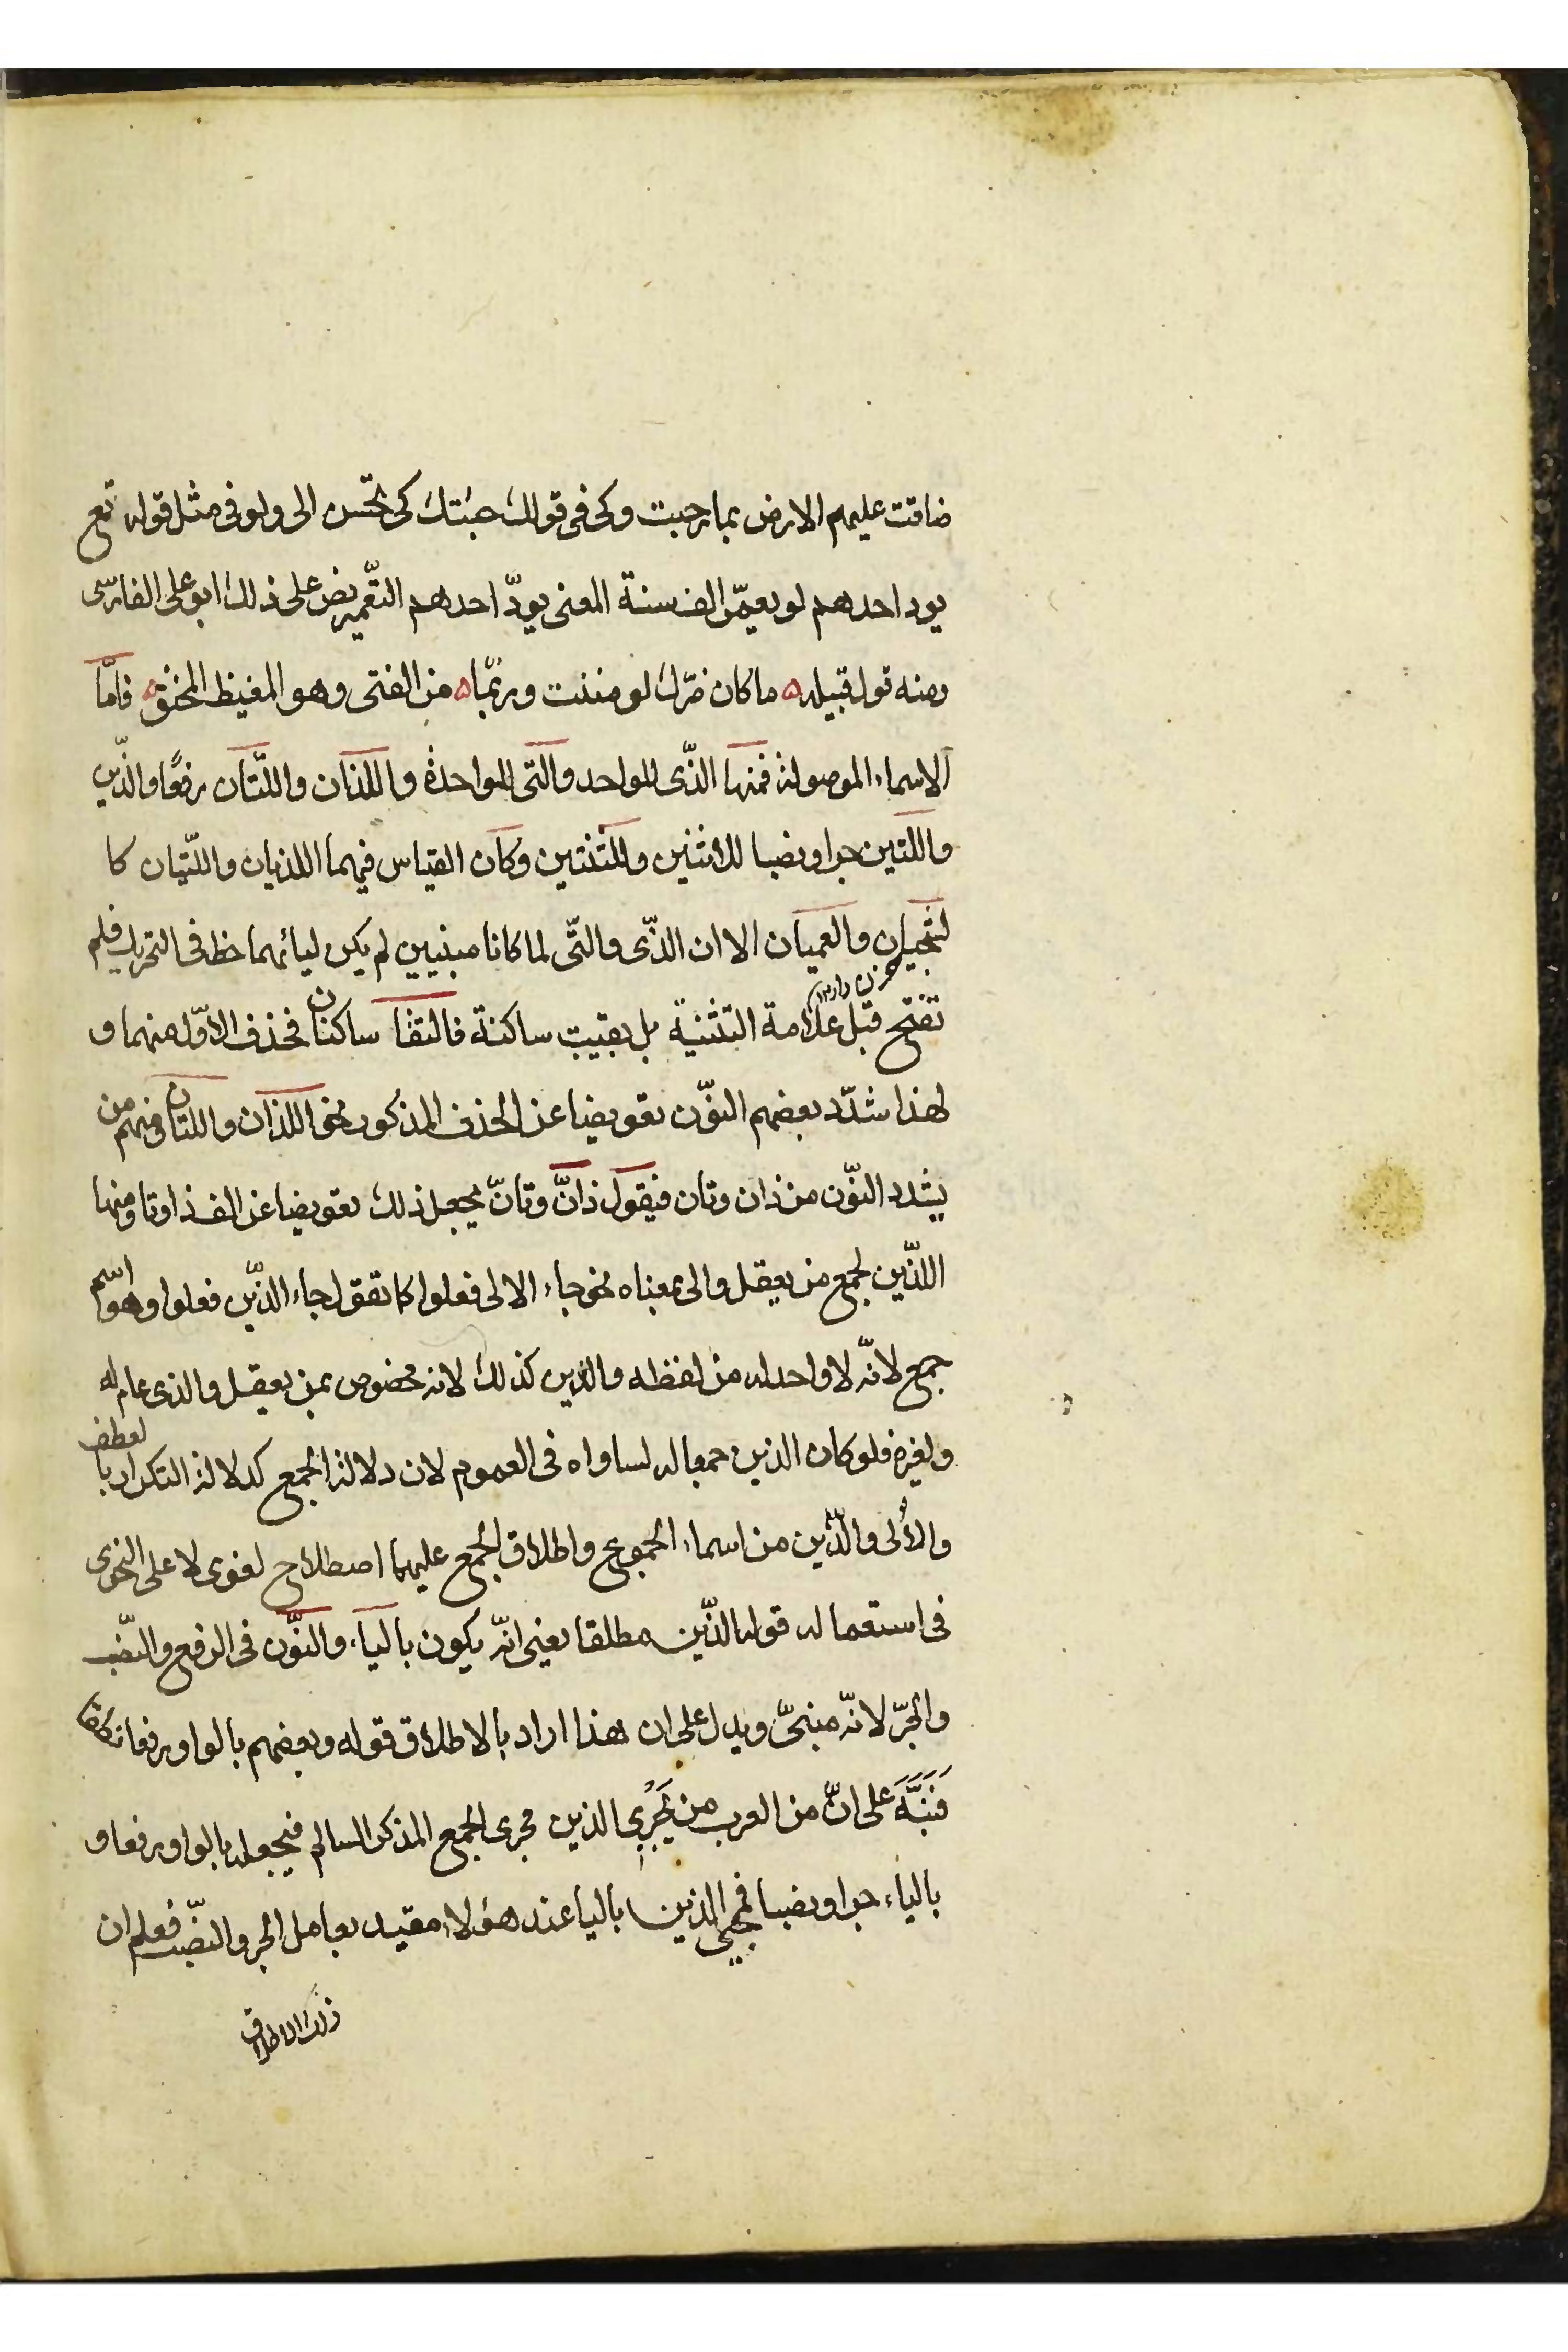 ضاقت عليهم الارض بما رحبت وكى فى قولك جئتك كى تحسن الى ولو فى مثل قوله تع
يود احدهم لو يعمّر الف سنة المعنى يودّ احدهم التّعمير نص على ذلك ابو على الفارسّى
ومنه قول قبيله ه ما كان ضرّك لو مننت وربّما ه من الفتى وهو المغيظ المحنق ه فامّا
الاسماء الموصولة فمنها الذّى للواحد والتى للواحدة واللذان واللّتان رفعًا والذّين
واللتين جرا ونصبا للاثنين واللثنتين وكان القياس فيهما اللذيان واللتّيان كا
لشجيان والعميان الا ان الذّى والتّى لما كانا مبنيين لم يكن ليائهما حظ فى التحريك فلم
تفتح قبل علامة التثنية بل بقيت ساكنة فالتقا ساكنان فحذف الاوّل منهما و
لهذا شدّد بعضهم النوّن تعويضا عن الحذف المذكور نحو اللذان واللتان ومنهم من
يشدد النوّن من ذان وتان فيقول ذانّ وتانّ يجعل ذلك تعويضا عن الف ذا وتا ومنها
اللذّين لجمع من يعقل والى بمعناه نحو جاء الالى فعلوا كما تقول جاء الذّين فعلوا وهو اسم
جمع لانّه لا واحد له من لفظه والذين كذلك لانه مخصوص بمن يعقل والذى عام له
ولغيره فلو كان الذين جمعا له لساواه فى العموم لان دلالة الجمع كدلالة التكرار با لعطف
والأُلى والذّين من اسماء الجموع واطلاق الجمع عليهما اصطلاح لغوى لا على النحوى
فى استعماله قوله الذّين مطلقا يعنى انّه يكون بالياء والنوّن فى الرفع والنصّب
والجرّ لانّه مبنىّ ويدل على ان هذا اراد بالاطلاق قوله وبعضهم بالواو رفعا نطقا
فَنَبَّهَ على انّ من العرب من يُجَرِى الذين مجرى الجمع المذكر السالم فيجعله بالواو رفعا و
بالياء جرا ونصبا فمجىء الذين بالياء عند هؤلاء مقيد بعامل الجر والنصّب فعلم ان
ذلك الاطلاق